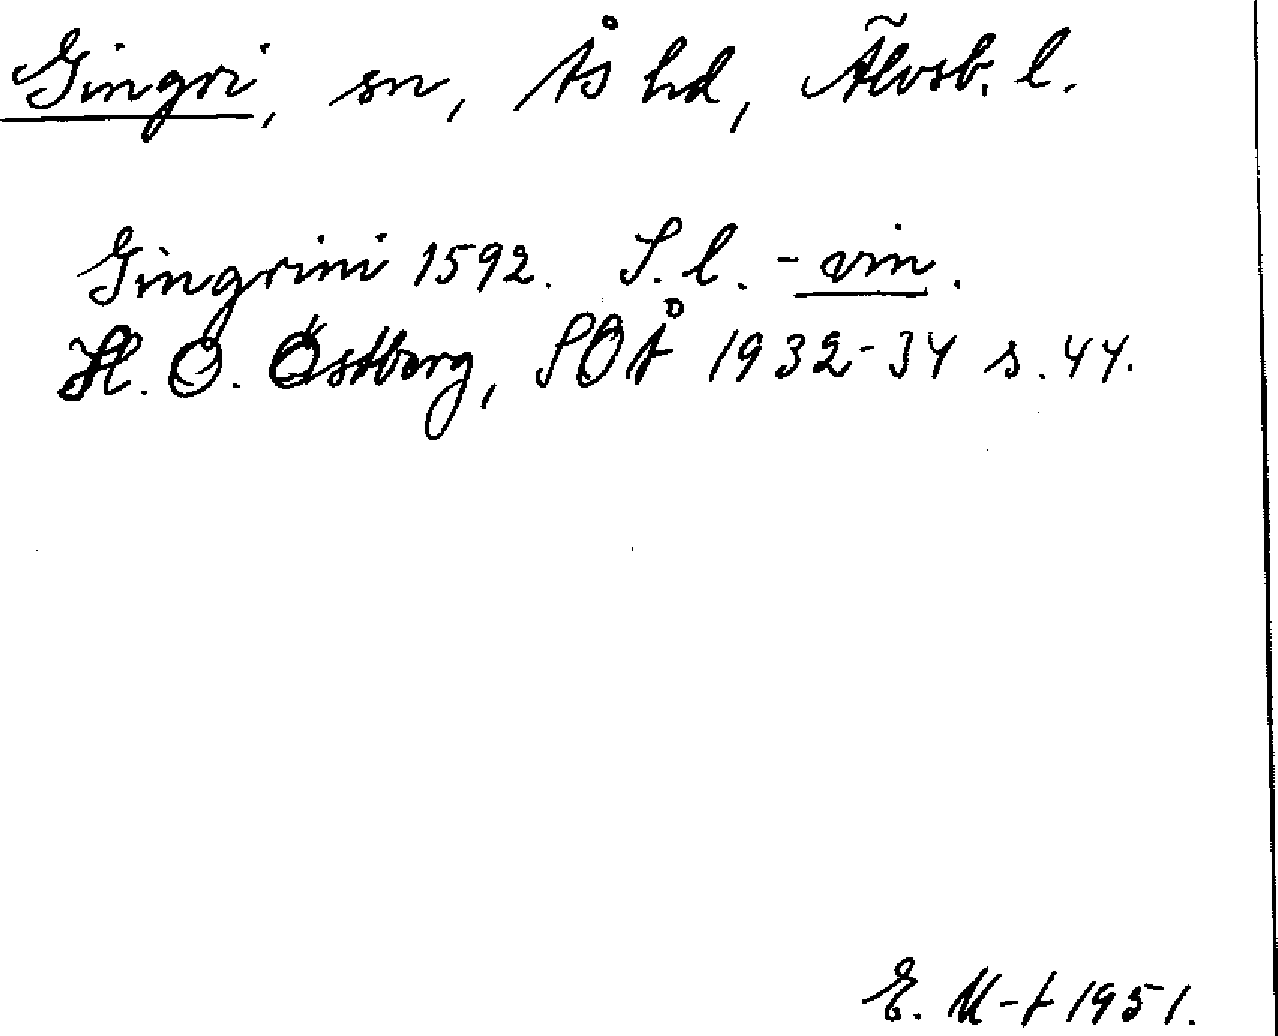 Gingri, sn, Ås hd, Älvsb. l.
Gingrini 1592. S. l. -vin.
H. O. Östberg, SOÅ 1932-34 s. 44.
E. M-t 1951.